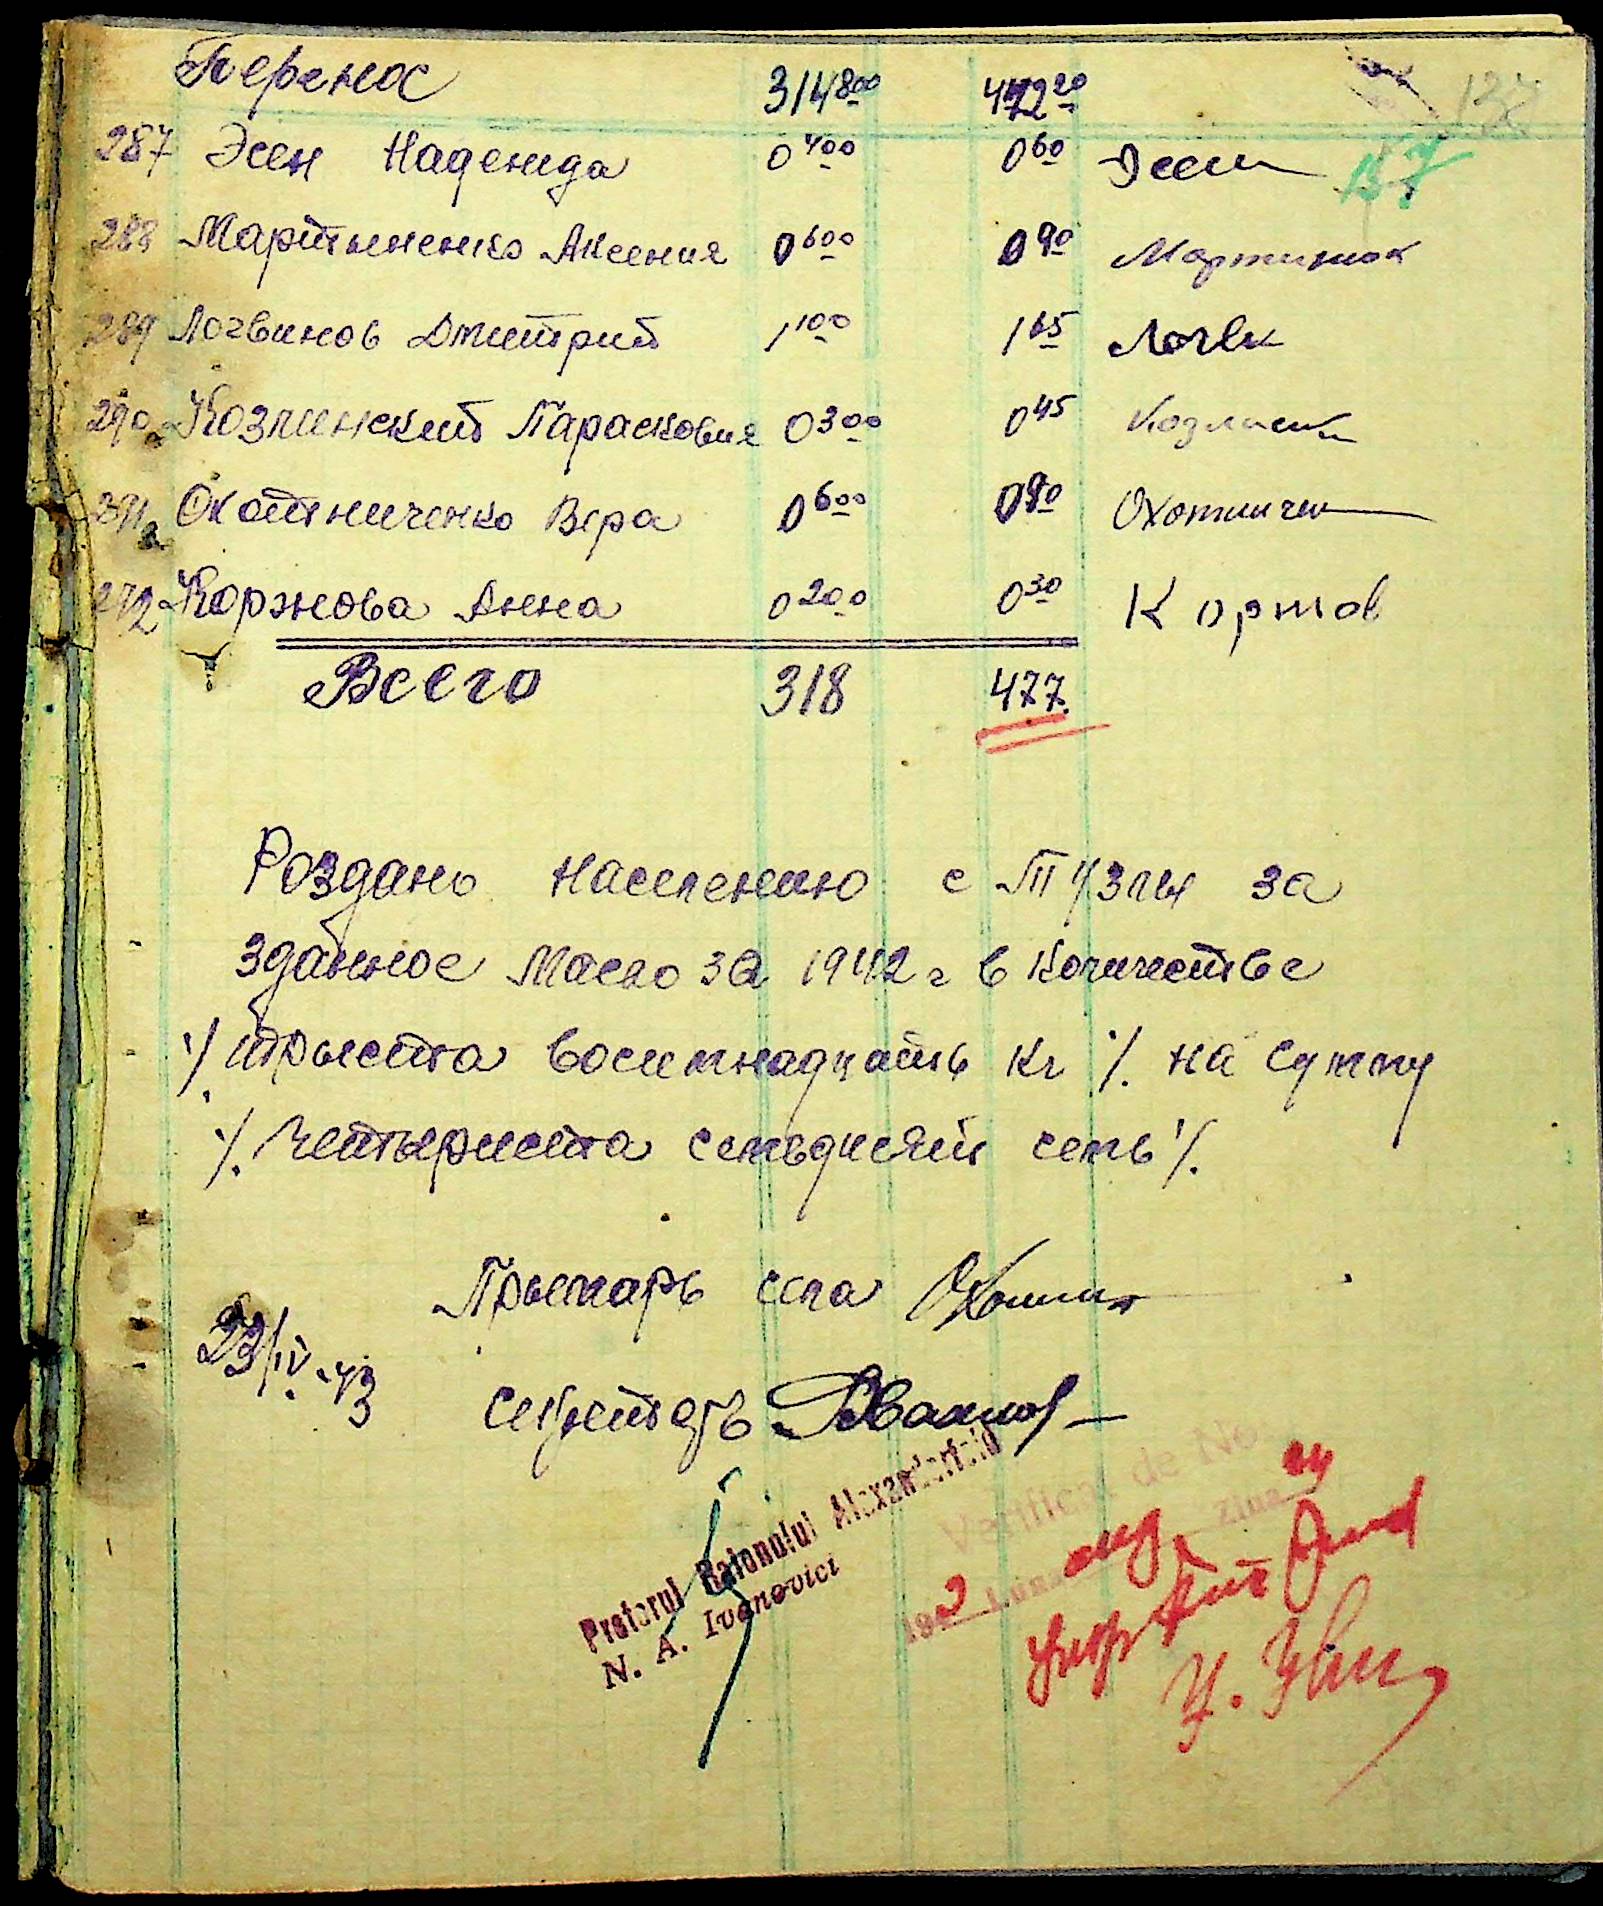 Перенос 314 800 472 20
137
287 Эсен Надежда 0 400 0 60 Эсен
137
288 Мартыненко Аксения 0 600 0 90 Мартинюк
289 Логвинов Дмитрий 1 100 1 65 Логвк
290 Козлинский Парасковия 0 300 0 45 Козлиски
291 Охотниченко Вера 0 600 0 90 Охотничен
292 Коржнова Анна 0 200 0 30 Коржов
Всего 318 477.
Роздано населению с Тузлы за
зданное масло за 1942 г в количестве
·/. трыста восемнадцать кг ·/. на сумму
·/. Четыриста семьдисят семь ·/.
Прымарь села
23/IV-43
секретарь
Pretorul Raionului Alexanderfeld
N. A. Ivanovici
Verificat de No
ziua
194 Luna